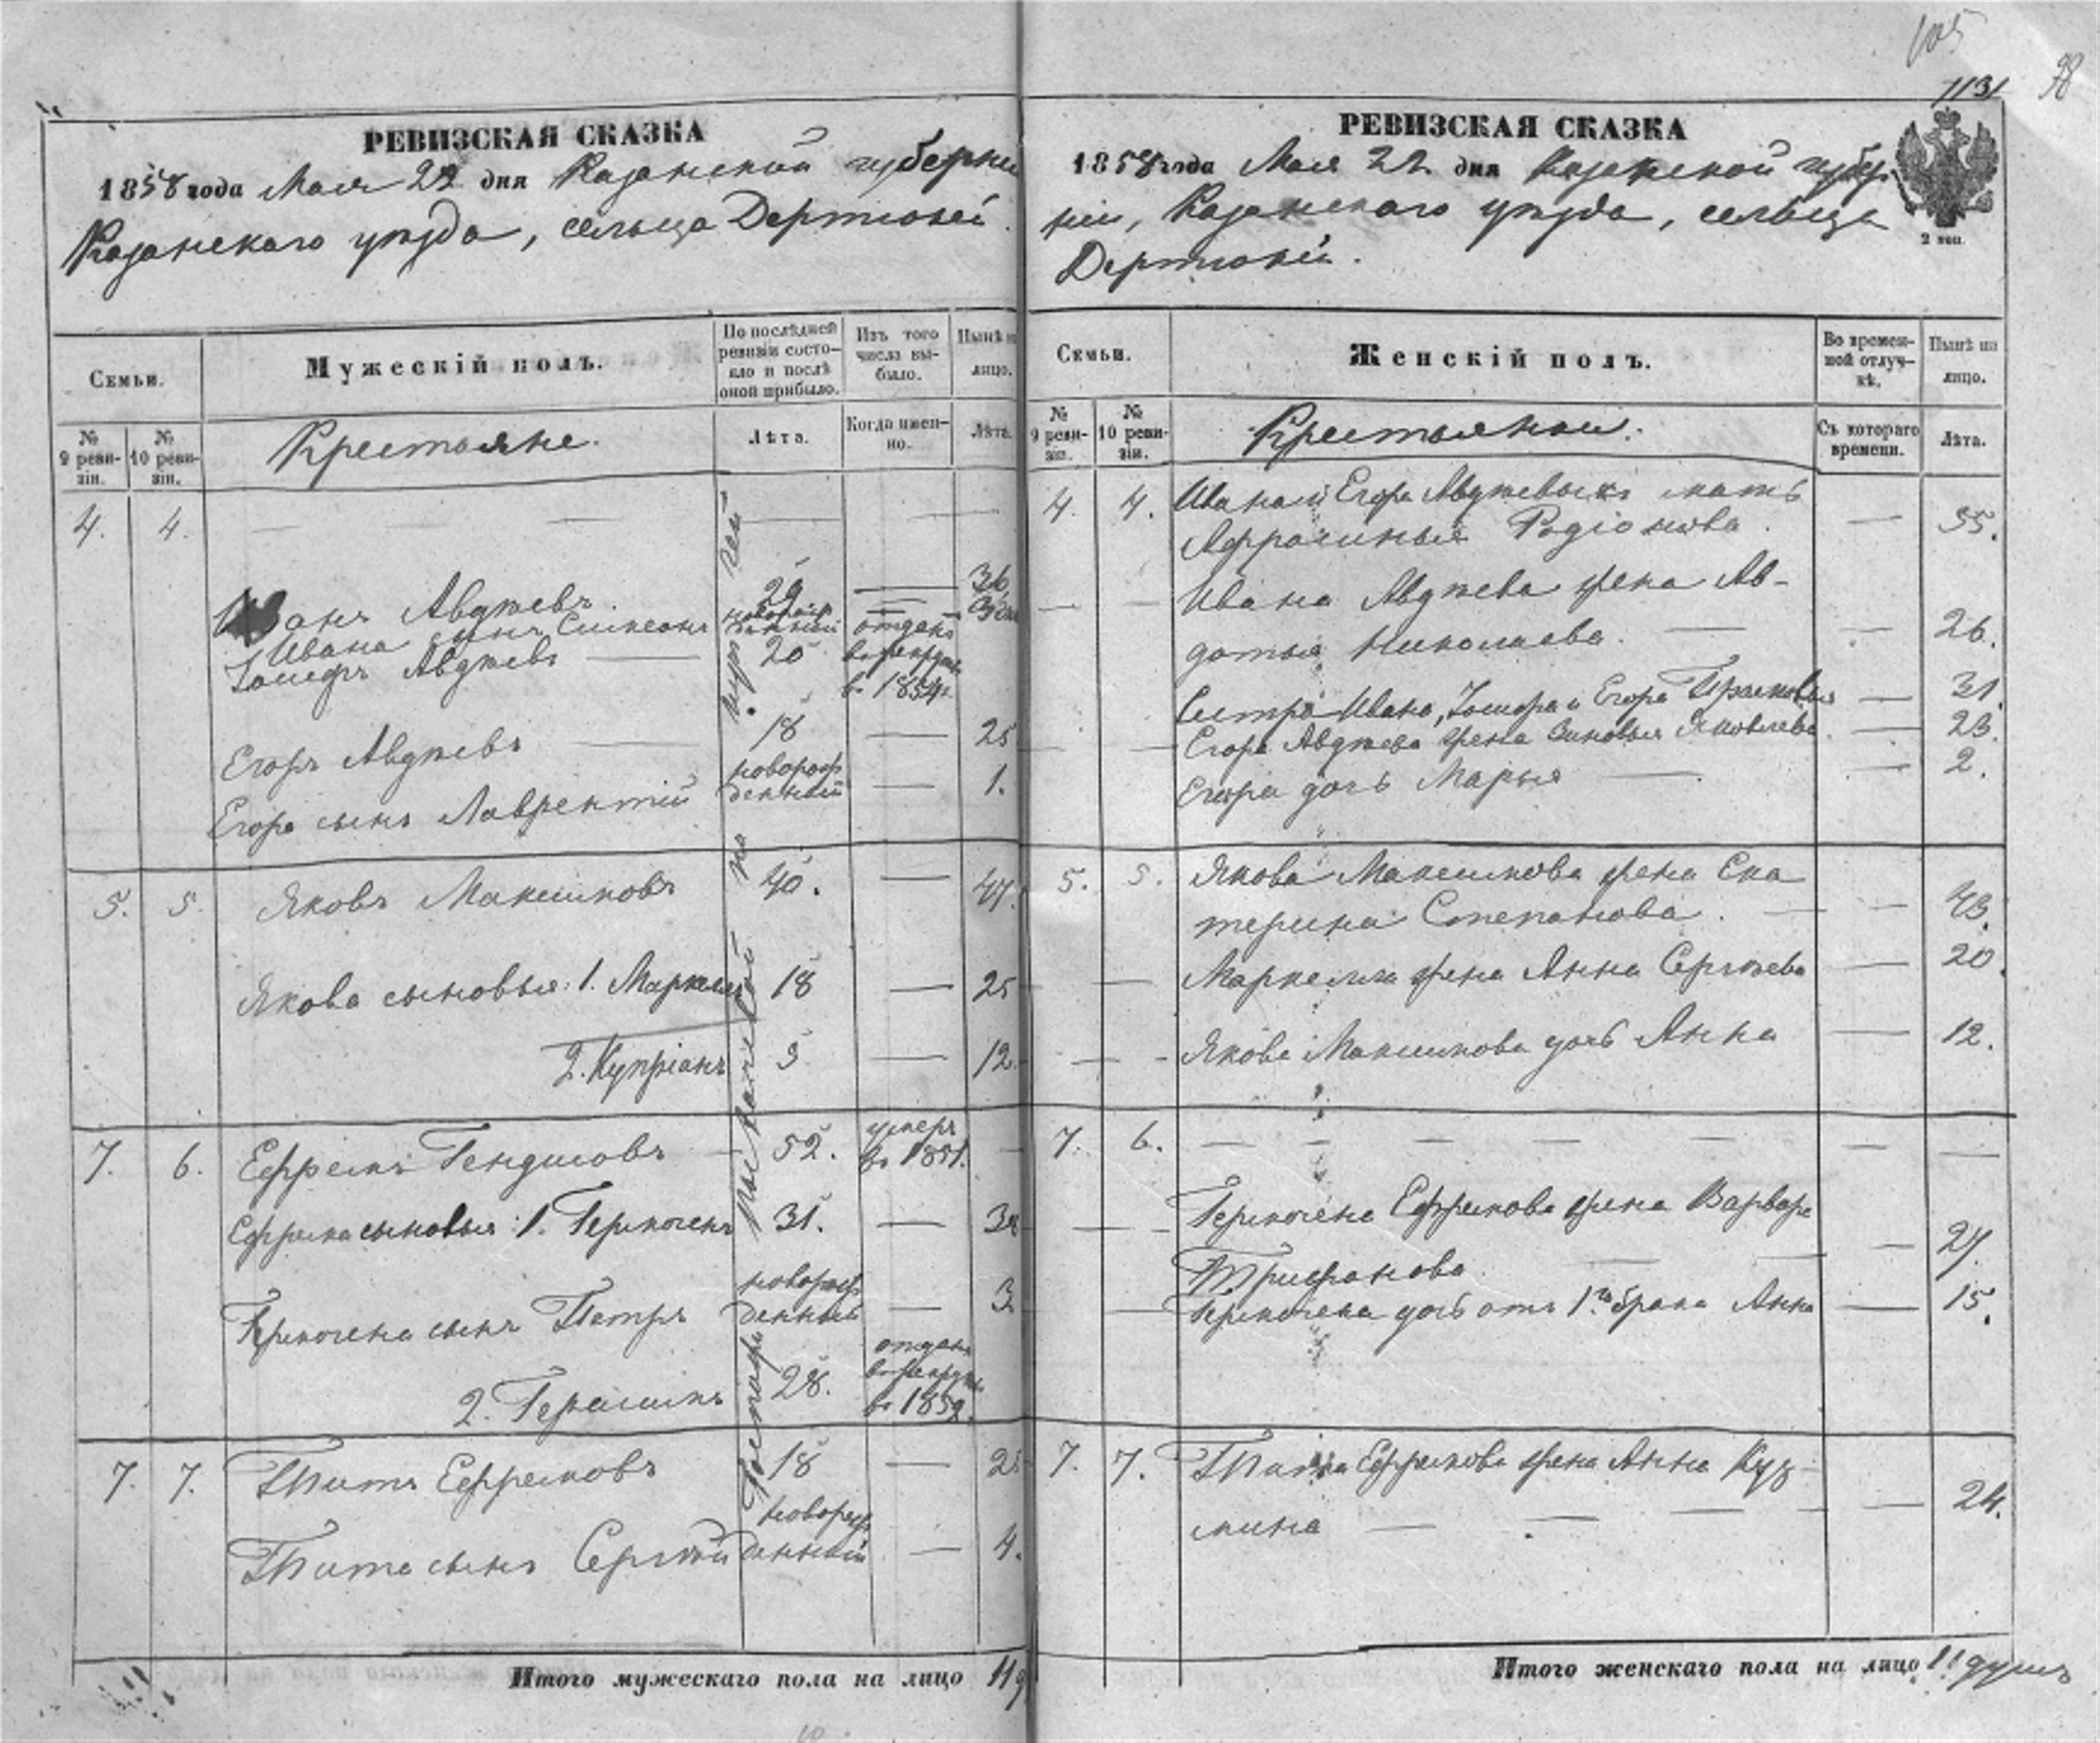 105
1131
98
РЕВИЗСКАЯ СКАЗКА
1858 года Мая 22 дня Казанской губерни
Казанскаго уѣзда, сельца Дертюлей.
Семьи.
Мужескій полъ.
По послѣдней ревизіи состояло и послѣ оной прибыло.
Изъ того числа выбыло.
Нынѣ на лицо.
№ 9 ревизіи.
№ 10 ревизіи.
Крестьяне.
Лѣта.
Когда именно.
Лѣта.
4. 4.
Иванъ Авдѣевъ. 29 — 36
Ивана сынъ Симеонъ новорожденный —
Іосифъ Авдѣевъ — 20 отданъ в рекруты в 1854г.
Егоръ Авдѣевъ — 18 — 25
Егора сынъ Лаврентій новорожденный — 1.
5. 5. Яковъ Максимовъ 40. — 47.
Якова сыновья: 1. Маркелъ 18 — 25
2. Купріанъ 5 — 12.
7. 6. Ефремъ 52. умеръ въ 1851. —
Ефрема сыновья: 1. Гермогенъ 31. — 38
Гермогена сынъ Петръ новорожденный — 3
2. Герасимъ 28. отданъ в рекруты в 1852.
7. 7. Титъ Ефремовъ 18 — 25
Тита сынъ Сергѣй новорожденный — 4.
Итого мужескаго пола на лицо 11
РЕВИЗСКАЯ СКАЗКА
1858 года Мая 22 дня Казанской губер-
ніи, Казанскаго уѣзда, сельца
Дертюлей.
2 коп.
Семьи.
Женскій полъ.
Во временной отлучкѣ.
Нынѣ на лицо.
№ 9 ревизіи.
№ 10 ревизіи.
Крестьянки.
Съ котораго времени.
Лѣта.
4. 4. Ивана и Егора Авдѣевыхъ мать
Афросинья Родіонова. — 55.
Ивана Авдѣева жена Ав-
дотья Николаева. — — 26.
Сестра Ивана, Іосифа и Егора Прасковья — 31.
Егора Авдѣева жена Зиновья Яковлева. — 23.
Егора дочь Марья — — 2.
5. 5. Якова Максимова жена Ека
терина Степанова. — — 43.
Маркелла жена Анна Сергѣева — 20.
Якова Максимова дочь Анна — 12.
7. 6. — — — — — —
Гермогена Ефремова жена Варвара
Трифонова. — — 27.
Гермогена дочь отъ 1го брака Анна — 15.
7. 7. Тита Ефремова жена Анна Кузь-
мина — — — — 24.
Итого женскаго пола на лицо 11 душъ